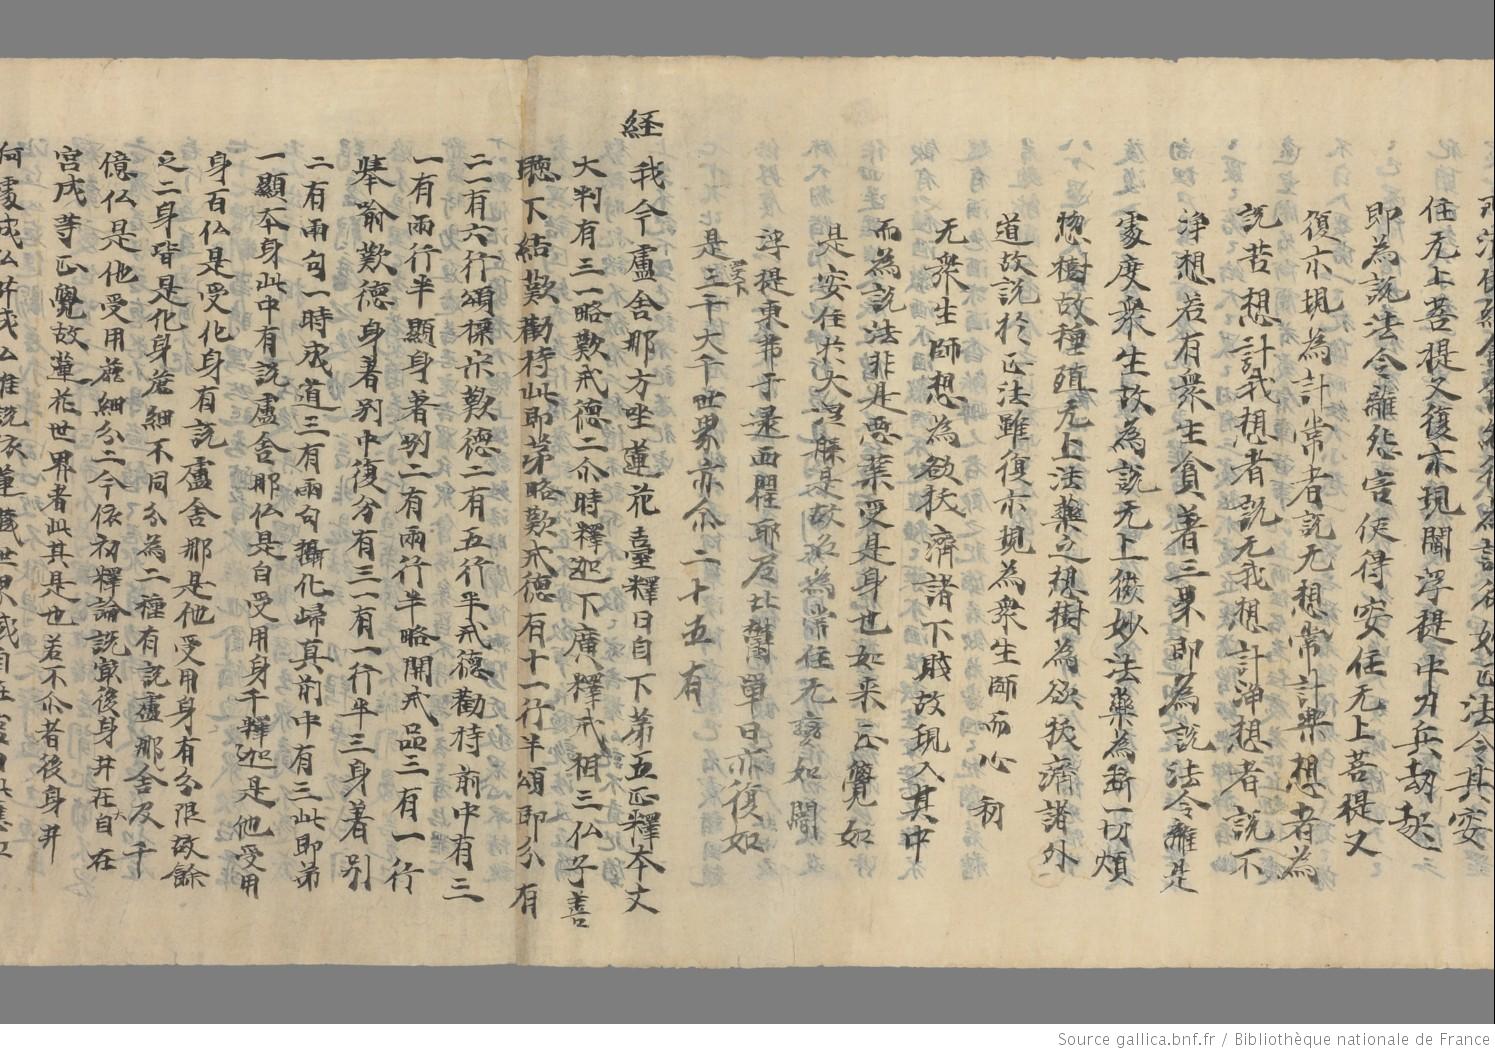 住无上菩提又復示現閻浮提中刀兵劫起
即為説法令離怨害使得安住无上菩提又
復示現為計常者説无想常計樂想者為
説苦想計我想者説无我想計淨想者説不
淨想若有衆生貪著三界即為説法令離是
處度衆生故為説无上微妙法藥為斷一切煩
惚樹故種殖无上法藥之想樹為欲扶濟諸外
道故説於正法雖復示現為衆生師而心初
无衆生師想為欲扶濟諸下賎故現入其中
而為説法非是悪業受是身也如来正覺如
是安住於大涅槃是故名為常住无變如閻
浮提東弗于逮西瞿耶尼北欝單曰亦復如
是三千大千世界亦尒二十五有
経 我今盧舍那方坐蓮花臺釋曰自下第五正釋本文
大判有三一略歎戒徳二尒時釋迦下廣釋戒相三仏子善
聴下結歎勸持此即第略歎戒徳有十一行半頌即分有
二一有六行頌標宗歎徳二有五行半戒徳勸持前中有三
一有兩行半顯身著別二有兩行半略開戒品三有一行
舉喻歎徳身著別中復分有三一有一行半三身著別
二有兩句一時成道三有兩句攝化歸真前中有三此即弟
一顯本身此中有説盧舍那仏是自受用身千釋迦是他受用
身百仏是受化身有説盧舍那是他受用身有分限故餘
之二身皆是化身麁細不同分為二種有説盧那舍及千
億仏是他受用麁細分二今依初釋論説寂後身井在自在
宮成等正覺故蓮花世界者此其是也若不尒者後身井